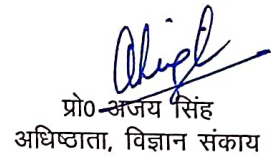 प्रो0 अजय सिंह
अधिष्ठाता, विज्ञान संकाय